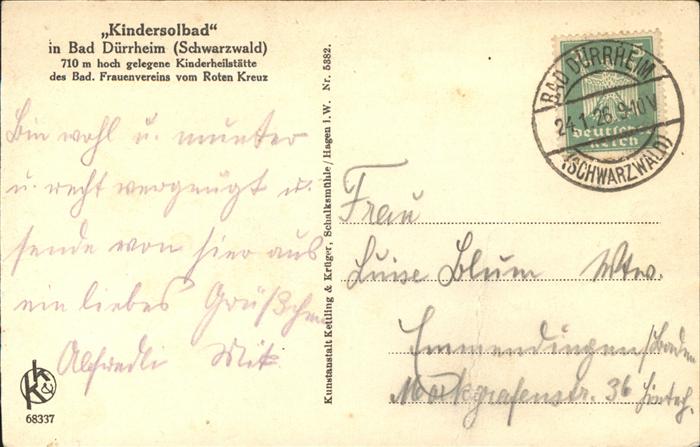 „Kindersolbad“
in Bad Dürrheim (Schwarzwald)
710 m hoch gelegene Kinderheilstätte
des Bad. Frauenvereins vom Roten Kreuz
Bin wohl u. munter
u. recht vergnügt u.
sende von hier aus
ein liebes Grüßchen
Alfredli
k & k
68337
Kunstanstalt Kettling & Krüger, Schalksmühle/Hagen i. W. Nr. 5382.
BAD DÜRRHEIM
24.1.26.9-10V
(SCHWARZWALD)
5
Deutsches
Reich
Frau
Luise Blum Wtw.
Emmendingen/Baden
Markgrafenstr. 36